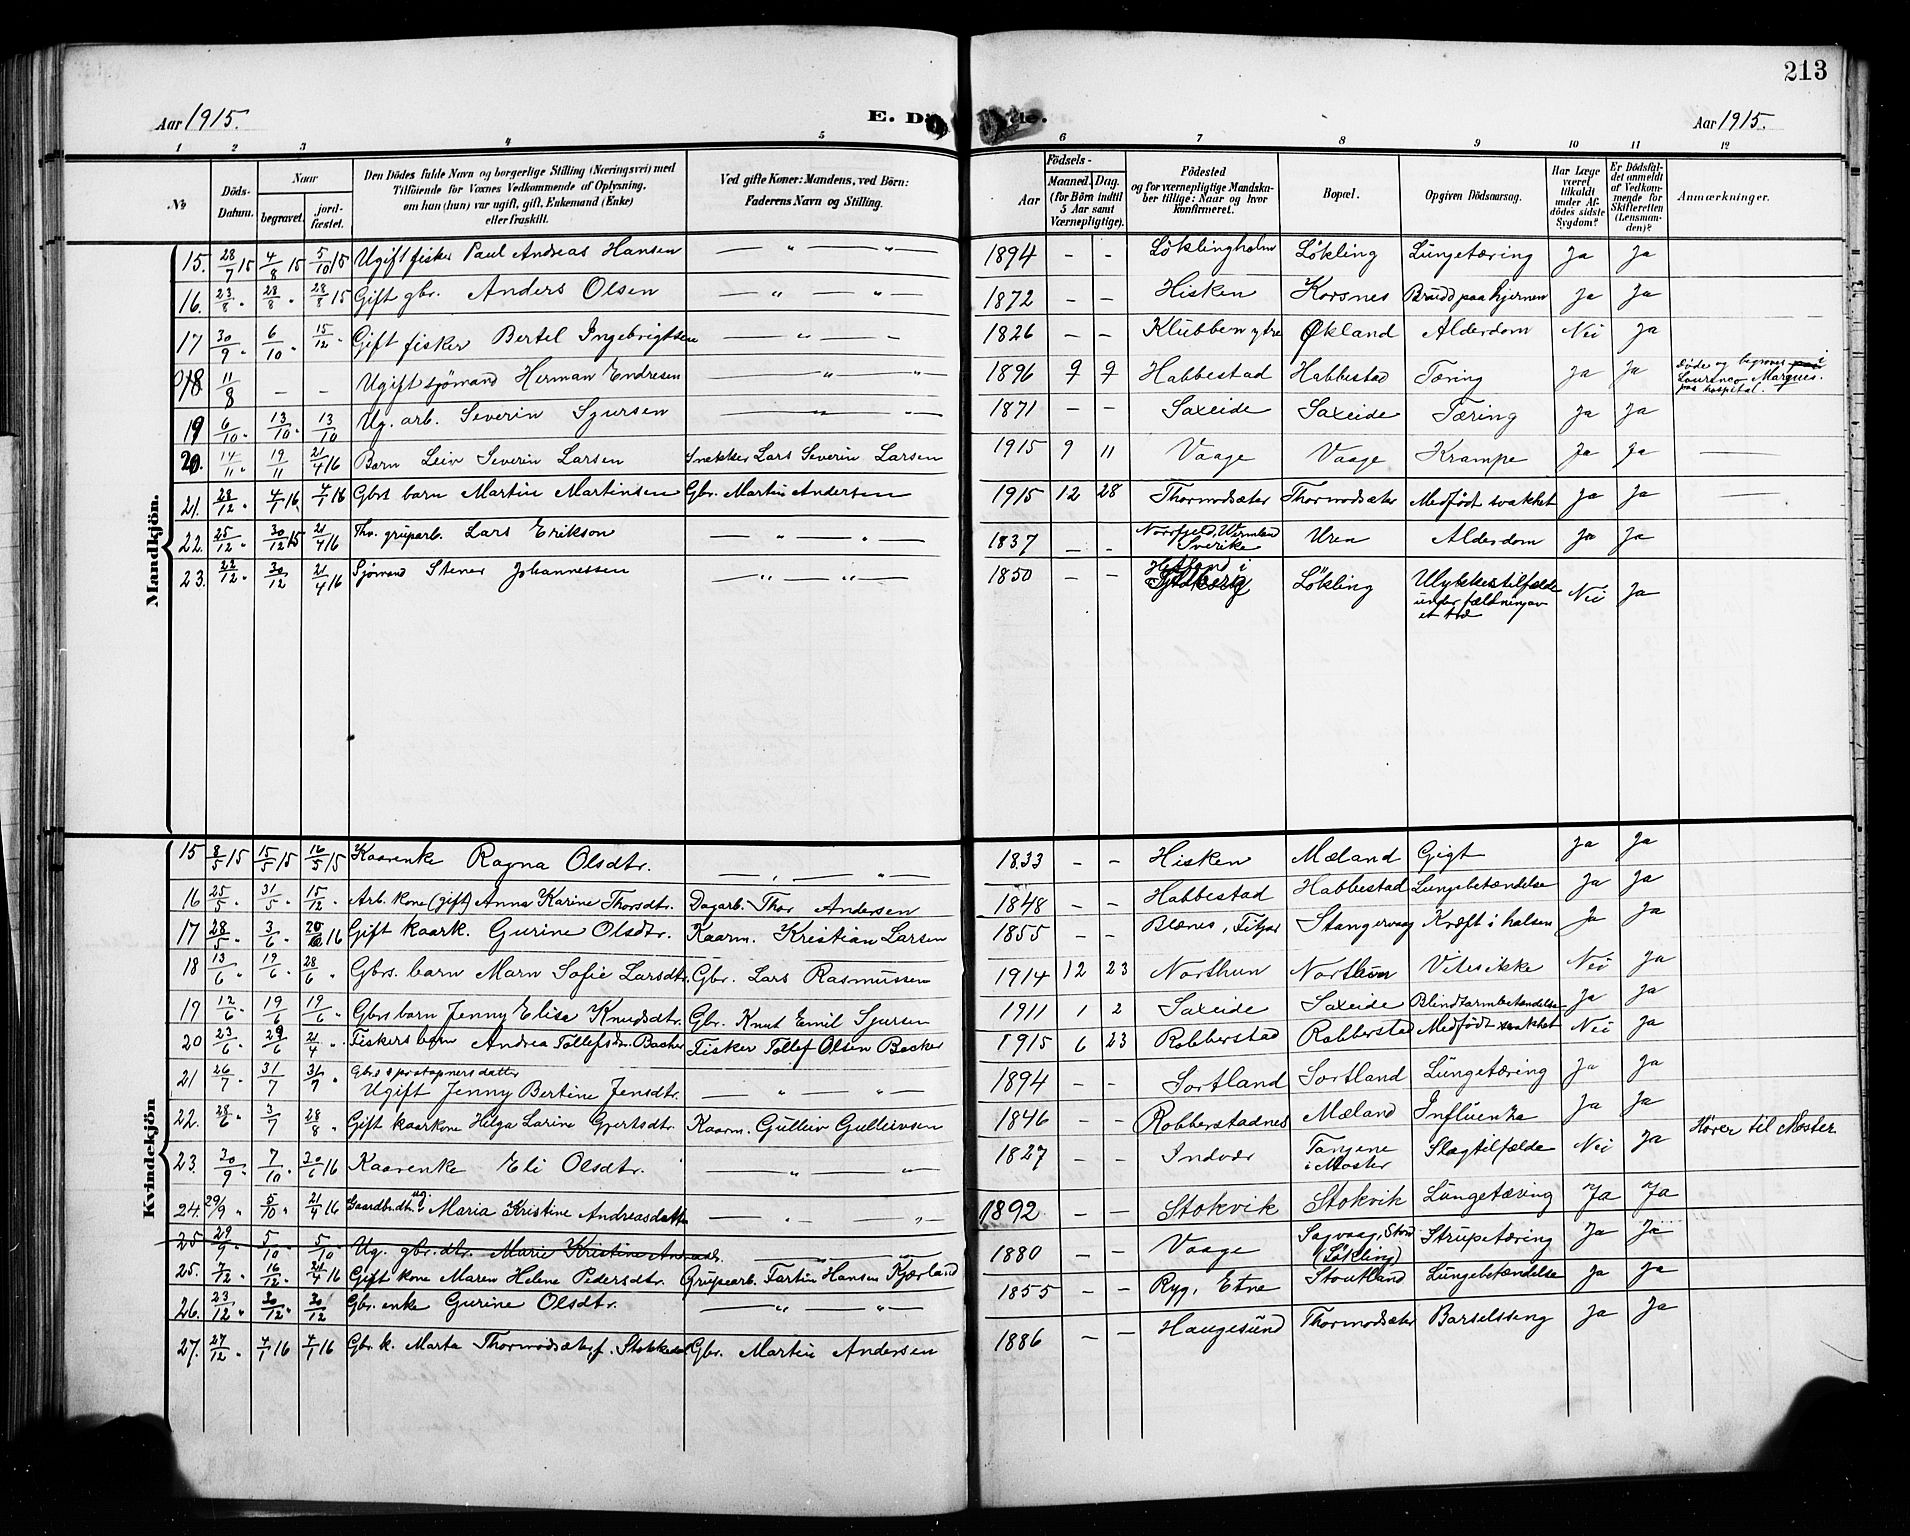 213
Aar 1915.
E. Dö
Aar 1915.
1 2 3 4 5 6 7 8 9 10 11 12
No
Döds-Datum.
Naar
begravet.
jord-fæstet.
Den Dödes fulde Navn og borgerlige Stilling (Næringsvei) med
Tilföiende for Voxnes Vedkommende af Oplysning,
om han (hun) var ugift, gift, Enkemand (Enke)
eller fraskilt.
Ved gifte Koner: Mandens, ved Börn:
Faderens Navn og Stilling.
Födsels-
Aar
Maaned. Dag.
(for Börn indtil
5 Aar samt
Værnepligtige).
Födested
og for værnepligtige Mandska-
ber tillige: Naar og hvor
Konfirmeret.
Bopæl.
Opgiven Dödsaarsag.
Har Læge
været
tilkaldt
under Af-
dödes sidste
Sygdom?
Er Dödsfal-
det anmeldt
af Vedkom-
mende for
Skifteretten
(Lensman-
den)?
Anmærkninger.
Mandkjön.
15. 28/7 15 4/8 15 5/10 15 Ugift fisker Paul Andreas Hansen — " — " — 1894 - - Löklingholm Lökling Lungetæring Ja Ja
16. 23/8 " 28/8 " 28/8 15 Gift gbr. Anders Olsen — " — " — 1872 - - Hisken Korsnes Brudd paa hjernen Ja Ja
17 30/9 " 6/10 " 15/12 " Gift fisker Bertel Ingebrigtsen — " — - 1826 - - Klubben ytre Økland Alderdom Nei Ja
18 11/8 - - Ugift sjömand Herman Endresen — " — " 1896 9 9 Habbestad Habbestad Tæring Ja Ja Döde og begravet i
Laurenco Marques.
paa hospital.
19 6/10 " 13/10 " 13/10 Ug. arb. Severin Sjursen — " — " 1871 - - Saxeide Saxeide Tæring Ja Ja
20. 14/11 " 19/11 21/4 16 Barn Leiv Severin Larsen Snekker Lars Severin Larsen 1915 9 11 Vaage Vaage Krampe Ja Ja
21. 28/12 " 4/1 16 4/1 16 Gbrs barn Martin Martinsen Gbr. Martin Andersen 1915 12 28 Thormodsæter Thormodsæter Medfödt svakhet Ja Ja
22. 25/12 " 30/12 15 21/4 16 Fhv. gruparb. Lars Erikson — " — " — 1837 - - Norrfjeld, Vermland
Sverike Uren Alderdom Ja Ja
23. 22/12 " 30/12 21/4 16 Sjömand Stener Johannessen — " — " — 1850 - - Hetland i
Lökling Ulykkestilfælde
under fældning av
et træ Nei Ja
Kvindekjön
15 8/5 15 15/5 15 16/5 15 Kaarenke Ragna Olsdtr. — " — " — 1833 - - Hisken Mæland Gigt Ja Ja
16 25/5 " 31/5 " 15/12 " Arb. kone (gift) Anna Karine Thorsdtr. Dagarb. Thor Andersen 1848 - - Habbestad Habbestad Lungebetændelse Ja Ja
17 28/5 " 3/6 " 16 Gift kaark. Gurine Olsdtr. Kaarm. Kristian Larsen 1855 - - Blænes, Fitjar Stangervaag Kræft i halsen Ja Ja
18 13/6 " 19/6 " 28/6 " Gbrs. barn Marn Sofie Larsdtr. Gbr. Lars Rasmussen 1914 12 23 Northun Northun Vites ikke Nei Ja
19 12/6 " 19/6 19/6 " Gbrs barn Jenny Elise Knudsdtr. Gbr. Knut Emil Sjursen 1911 1 2 Saxeide Saxeide Blindtarmbetændelse Ja Ja
20 23/6 " 29/6 21/4 " Fiskers barn Andrea Tollefsdtr. Backer Fisker Tollef Olsen Backer 1915 6 23 Robberstad Robberstad Medfödt svakhet Nei Ja
21 26/7 " 31/7 31/7 "
Ugift Jenny Bertine Jensdtr. — " — " — 1894 - - Sortland Sortland Lungetæring Ja Ja
22. 28/6 " 3/7 28/8 " Gift kaarkone Helga Larine Gjertsdtr. Kaarm. Gulleiv Gulleivsen 1846 - - Robberstadnes Mæland Influenza Ja Ja
23. 30/9 " 7/10 " 30/6 16 Kaarenke Eli Olsdtr. — " — " 1827 - - Indvær Tangene
i Moster Slagtilfælde Nei Ja Hörer til Moster
24. 29/9 " 5/10 " 21/4 16 Gaardbr.dtr. ug. Maria Kristine Andreasdatter — " — " 1892 - - Stokvik Stokvik Lungetæring Ja Ja
25 29/9 " 5/10 " 5/10 " Ug. gbr. dtr. Marie Kristine Andreasdtr. — " —
25. 7/12 " 16/12 " 21/4 16 Gift kone Maren Helene Pedersdtr. Grubearb. Fartin Hansen Kjærland 1880 - - Vaage Sagvaag, Stord
(Lökling) Strupetæring Ja Ja
26. 23/12 " 30/12 " 30/12 Gbr. enke Gurine Olsdtr. — " — " — 1855 - - Ryg, Etne Stoutland Lungebetændelse Ja Ja
27. 27/12 " 4/1 16 4/1 16 Gbr. k. Marta Thormodsæter f. Stokkedal Gbr. Martin Andersen 1886 - - Haugesund Thormodsæter Barselseng Ja Ja